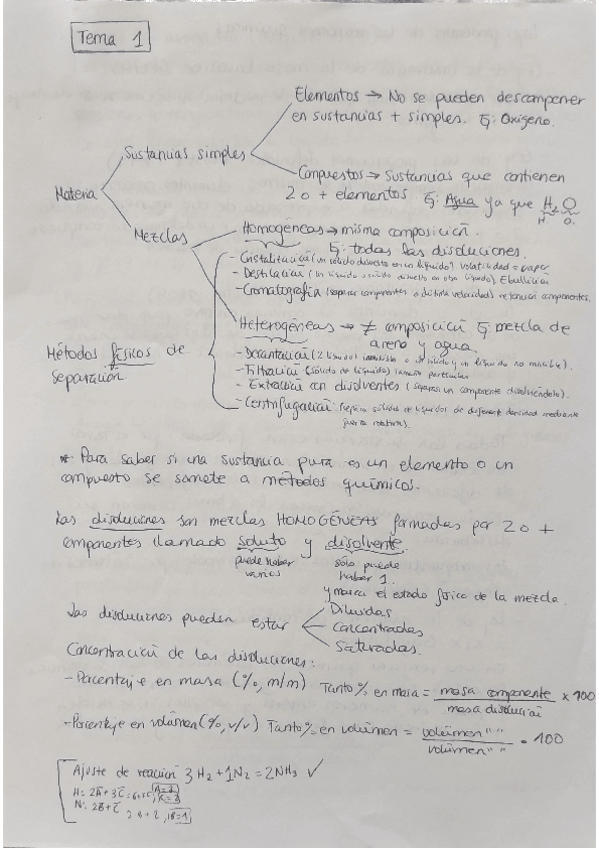 Tema 1
Elementos → No se pueden descomponer
en sustancias + simples. Ej: Oxígeno.
Sustancias simples
Compuestos → Sustancias que contienen
2 o + elementos Ej: Agua ya que H2O
H O.
Materia
Mezclas
Homogéneas → misma composición.
Ej: todas las disoluciones.
- Cristalización (un sólido disuelto en un líquido) volatilidad = vapor
- Destilación (un líquido o sólido disuelto en otro líquido) Ebullición
- Cromatografía (separar componentes a distinta velocidad) retención componentes.
Heterogéneas → ≠ composición Ej: mezcla de
arena y agua.
Métodos físicos de
separación
- Decantación (2 líquidos inmiscibles o un sólido y un líquido no miscible).
- Filtración (sólido de líquido) tamaño partículas
- Extracción con disolventes (separas un componente disolviéndolo).
- Centrifugación: (separa sólidos de líquidos de diferente densidad mediante
fuerza rotatoria).
* Para saber si una sustancia pura es un elemento o un
compuesto se somete a métodos químicos.
Las disoluciones son mezclas HOMOGÉNEAS formadas por 2 o +
componentes llamado soluto y disolvente.
puede haber varios
sólo puede haber 1.
y marca el estado físico de la mezcla.
Las disoluciones pueden estar
Diluidas
Concentradas
Saturadas.
Concentración de las disoluciones:
- Porcentaje en masa (%, m/m) Tanto % en masa = masa componente / masa disolución × 100
- Porcentaje en volúmen (%, v/v) Tanto % en volúmen = volúmen " " / volúmen " " · 100
Ajuste de reacción 3H2 + 1N2 = 2NH3 ✓
H= 2A + 3C
N= 2B + C
B=1